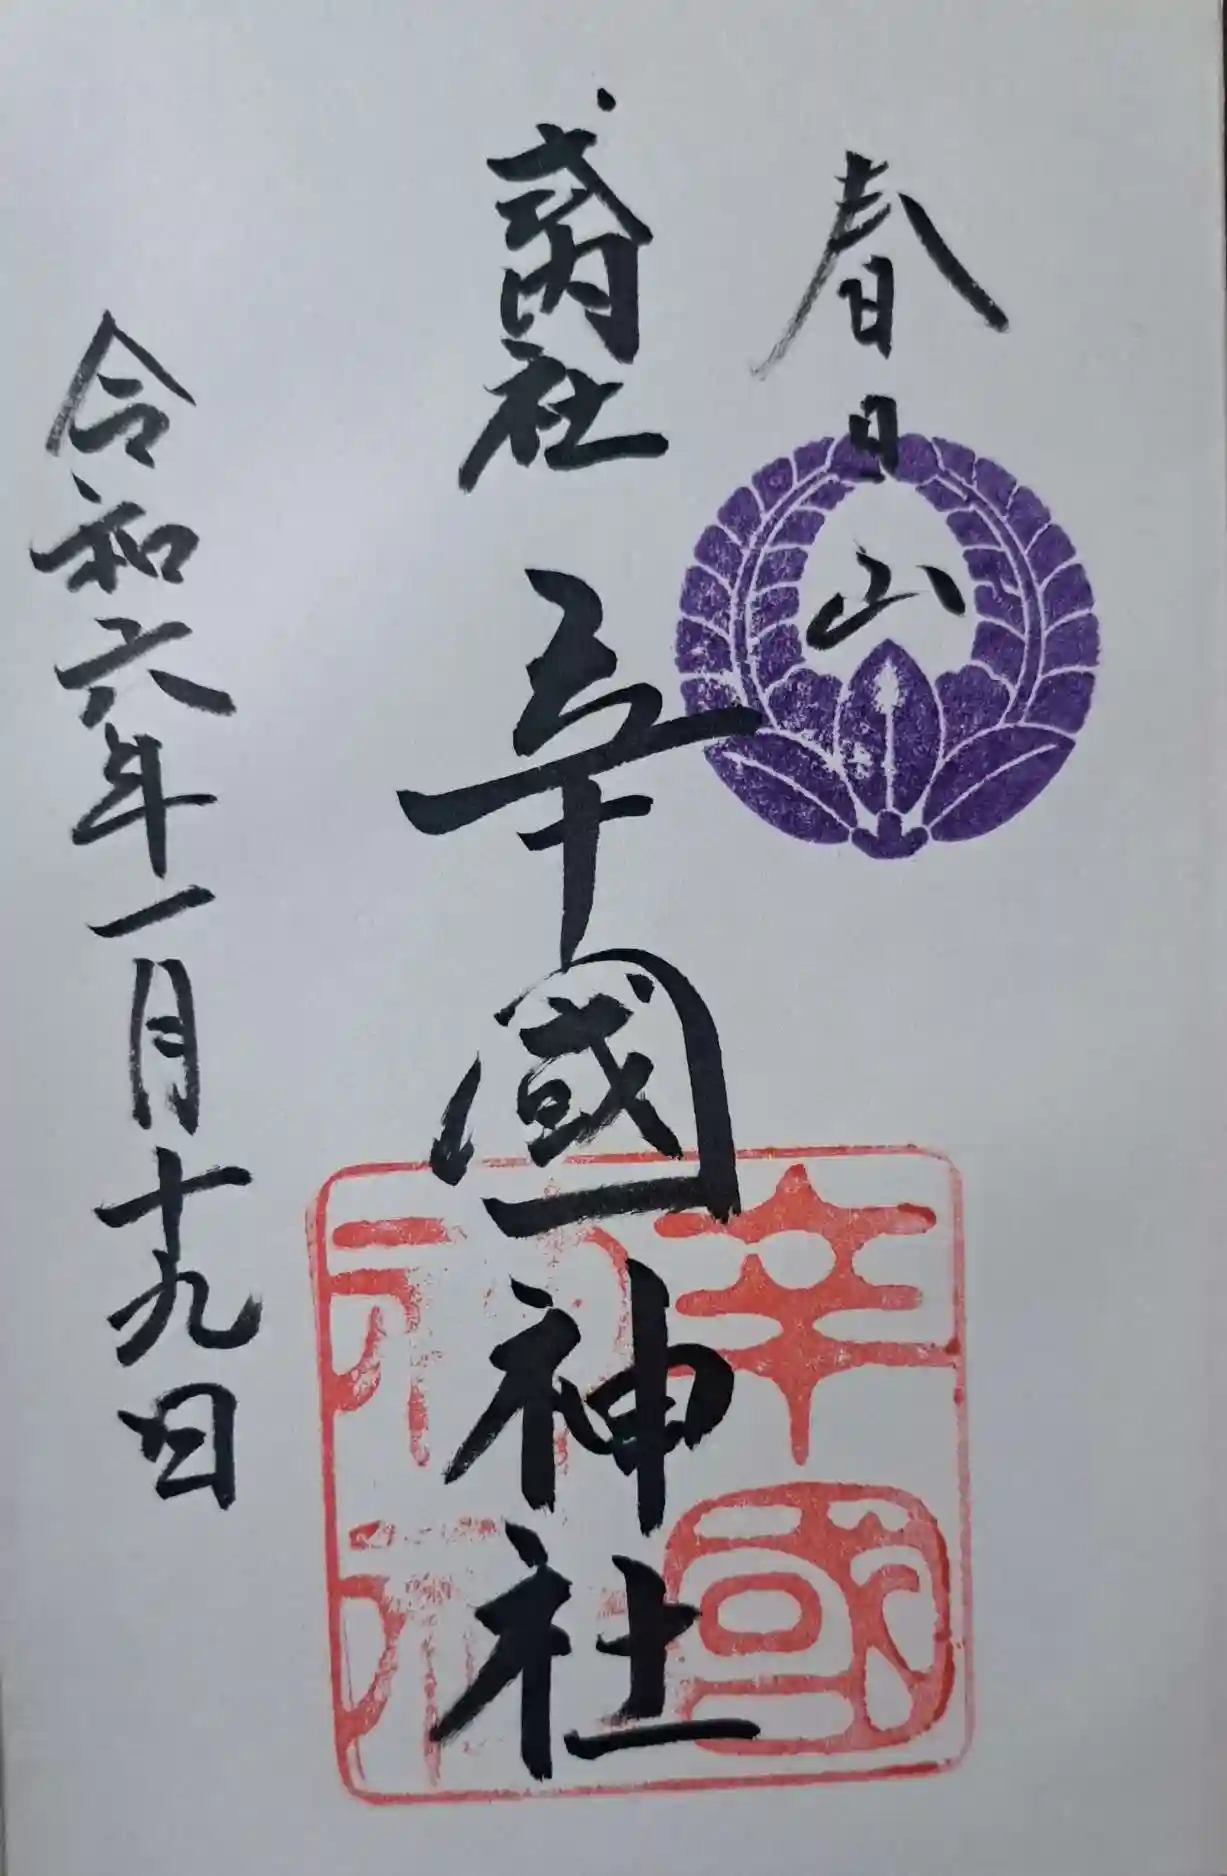 春日山
式内社 辛國神社
令和六年一月十九日
辛國
神社